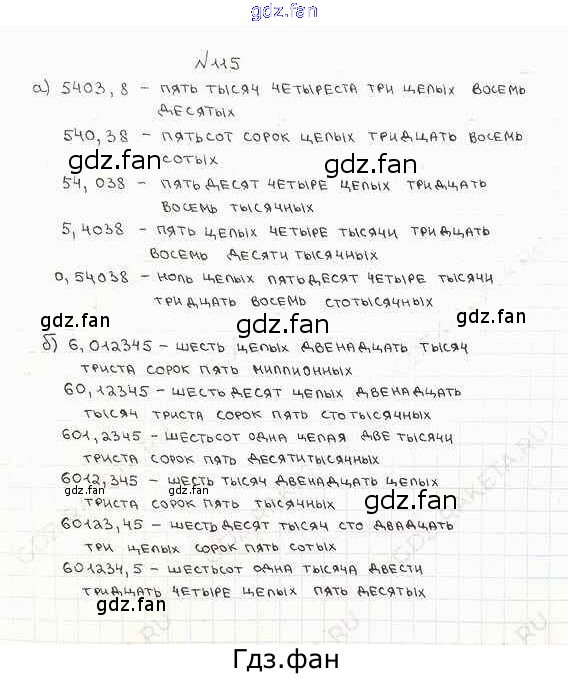 gdz.fan
N 115
а) 5403,8 – пять тысяч четыреста три целых восемь
десятых
540,38 – пятьсот сорок целых тридцать восемь
gdz.fan сотых gdz.fan
54,038 – пятьдесят четыре целых тридцать
восемь тысячных
5,4038 – пять целых четыре тысячи тридцать
восемь десятитысячных
0,54038 – ноль целых пятьдесят четыре тысячи
тридцать восемь стотысячных
gdz.fan gdz.fan
б) 6,012345 – шесть целых двенадцать тысяч
триста сорок пять миллионных
60,12345 – шестьдесят целых двенадцать
тысяч триста сорок пять стотысячных
601,2345 – шестьсот одна целая две тысячи
триста сорок пять десятитысячных
6012,345 – шесть тысяч двенадцать целых
gdz.fan gdz.fan
триста сорок пять тысячных
60123,45 – шестьдесят тысяч сто двадцать
три целых сорок пять сотых
601234,5 – шестьсот одна тысяча двести
тридцать четыре целых пять десятых
gdz.fan gdz.fan
Гдз.фан